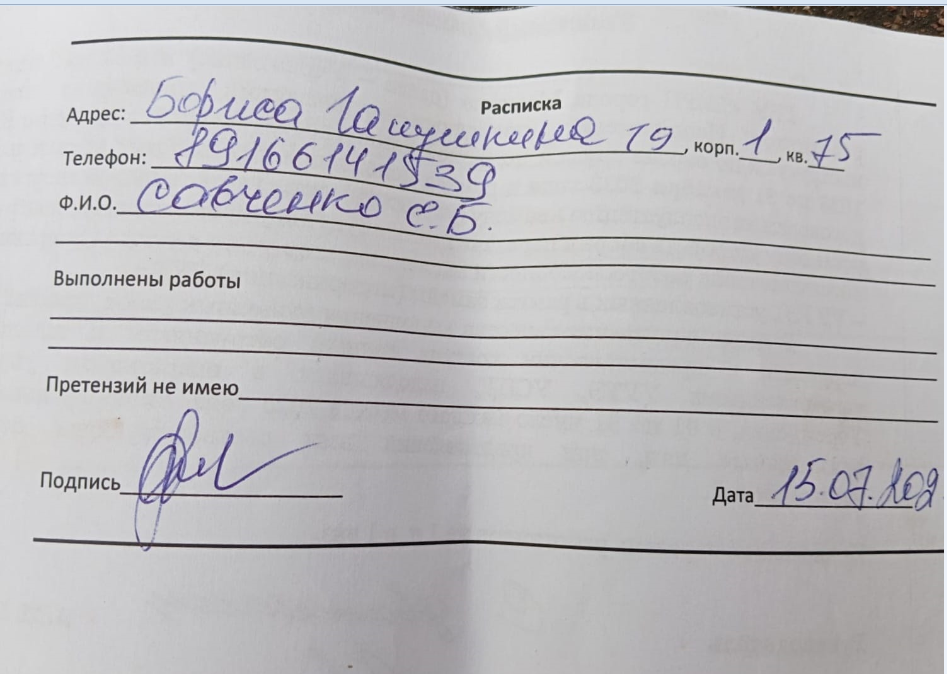 Расписка
Адрес: Бориса Галушкина 19, корп. 1, кв. 75
Телефон: 89166141539
Ф.И.О. Савченко Е.Б.
Выполнены работы
Претензий не имею
Подпись
Дата 15.07.202